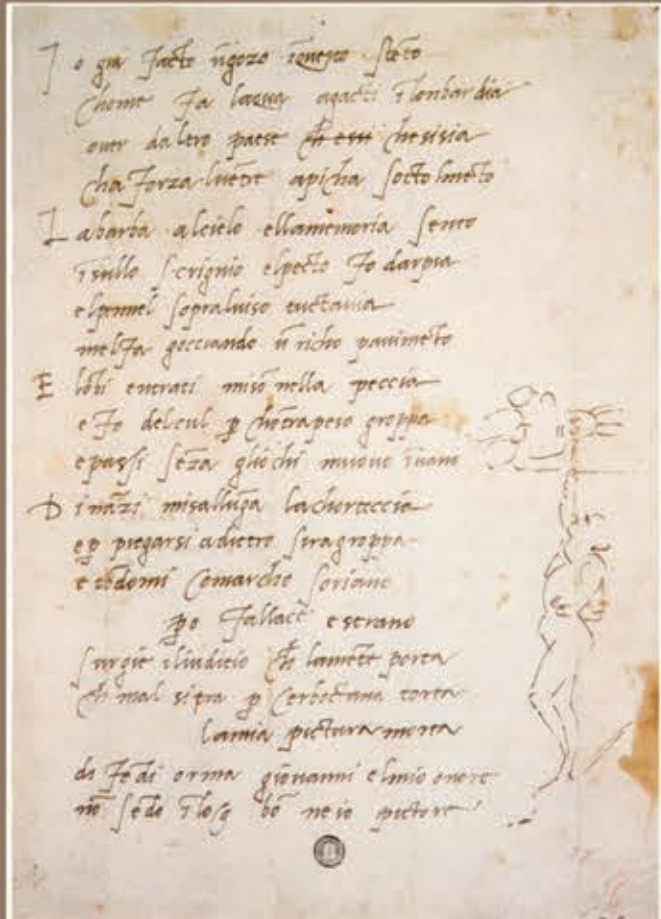 I o gia facto ũgozo ĩquesto stẽto
chome fa lacqua agacti ĩ lonbardia
over daltro paese ch̃ essi chesisia
cha forza lvẽtre apicha socto lmẽto
L abarba alcielo ellamemoria sento
ĩsullo scrignio elpecto fo darpia
elpennel sopraluiso tuctavia
melfa gocciando ũ richo pauimẽto
E lõbi entrati miso nella peccia
e fo delcul p chõtrapeso groppa
epassi sẽza gliochi muouo ĩuano
D inãzi misallũga lachorteccia
e p piegarsi adietro siragroppa
e tẽdomi comarcho soriano
po fallace e strano
surgie iliuditio ch̃ lamẽte porta
ch̃ mal sitra p cerboctana torta
lamia pictura morta
di fẽdi orma giouanni elmio onore
nõ sẽdo ĩ log bõ ne io pictore